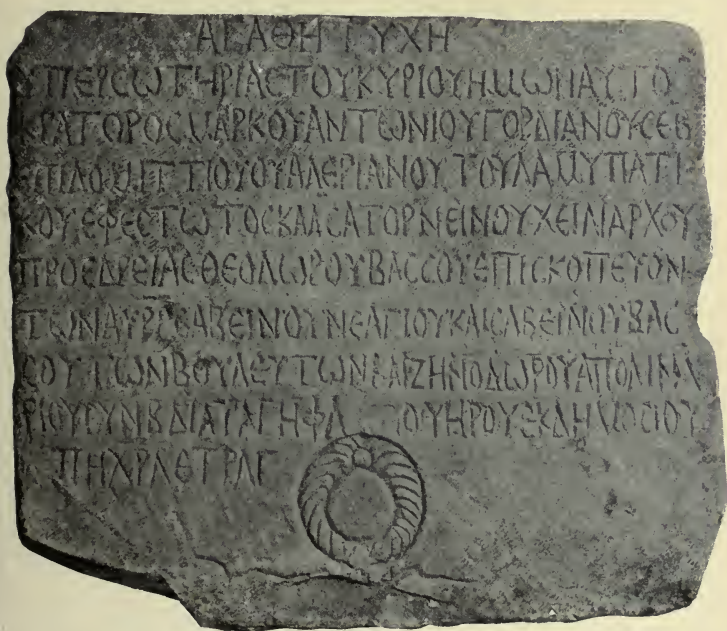 ΑΓΑΘΗ ΤΥΧΗ
ΥΠΕΡCΩΤΗΡΙΑCΤΟΥΚΥΡΙΟΥΗΜΩΝΑΥΤΟ
ΚΡΑΤΟΡΟCΜΑΡΚΟΥΑΝΤΩΝΙΟΥΓΟΡΔΙΑΝΟΥCΕΒ
ΕΠΙΔΟΜΙΤΤΙΟΥΟΥΑΛΕΡΙΑΝΟΥΤΟΥΛΑΜΥΠΑΤΙ
ΚΟΥΕΦΕCΤΩΤΟCΚΛΑCΑΤΟΡΝΕΙΝΟΥΧΕΙΛΙΑΡΧΟΥ
ΠΡΟΕΔΡΕΙΑCΘΕΟΔΩΡΟΥΒΑCCΟΥΕΠΙCΚΟΠΕΥΟΝ
ΤΩΝΑΥΡΡCΑΒΕΙΝΟΥΝΕΑΓΙΟΥΚΑΙCΑΒΕΙΝΟΥΒΑC
CΟΥΤΩΝΒΟΥΛΕΥΤΩΝΚΑΙΖΗΝΟΔΩΡΟΥΑΠΟΛΙΝΑ
ΡΙΟΥCΥΝΒΔΙΑΤΑΓΗΦΛ ΟΥΗΡΟΥΕΚΔΗΜΟCΙΟΥ
ΠΗΧΡΛΕΤΡΛΓ